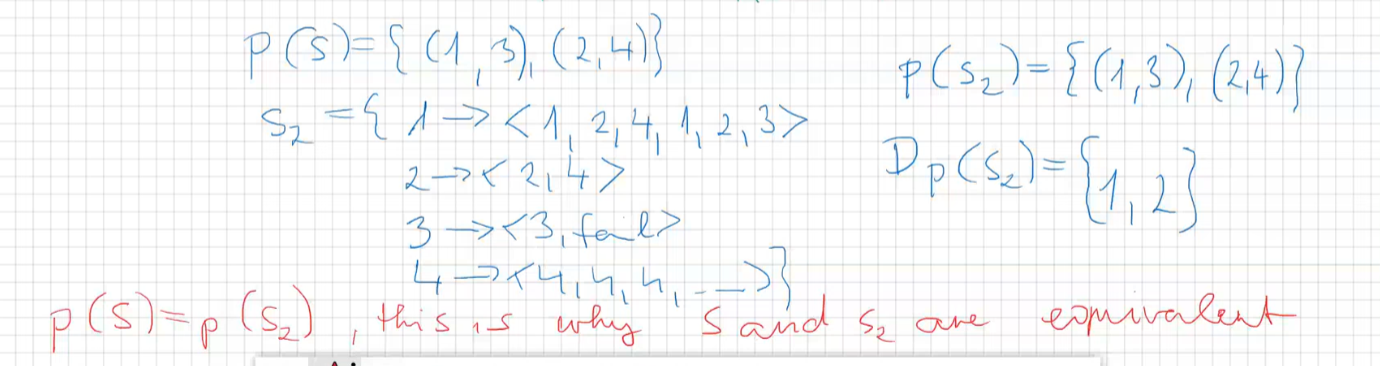 p(S)={(1,3),(2,4)}
p(S₂)={(1,3),(2,4)}
S₂={1→<1,2,4,1,2,3>
2→<2,4>
3→<3,fail>
4→<4,4,4,...>}
D p(S₂)={1,2}
p(S)=p(S₂), this is why S and S₂ are equivalent